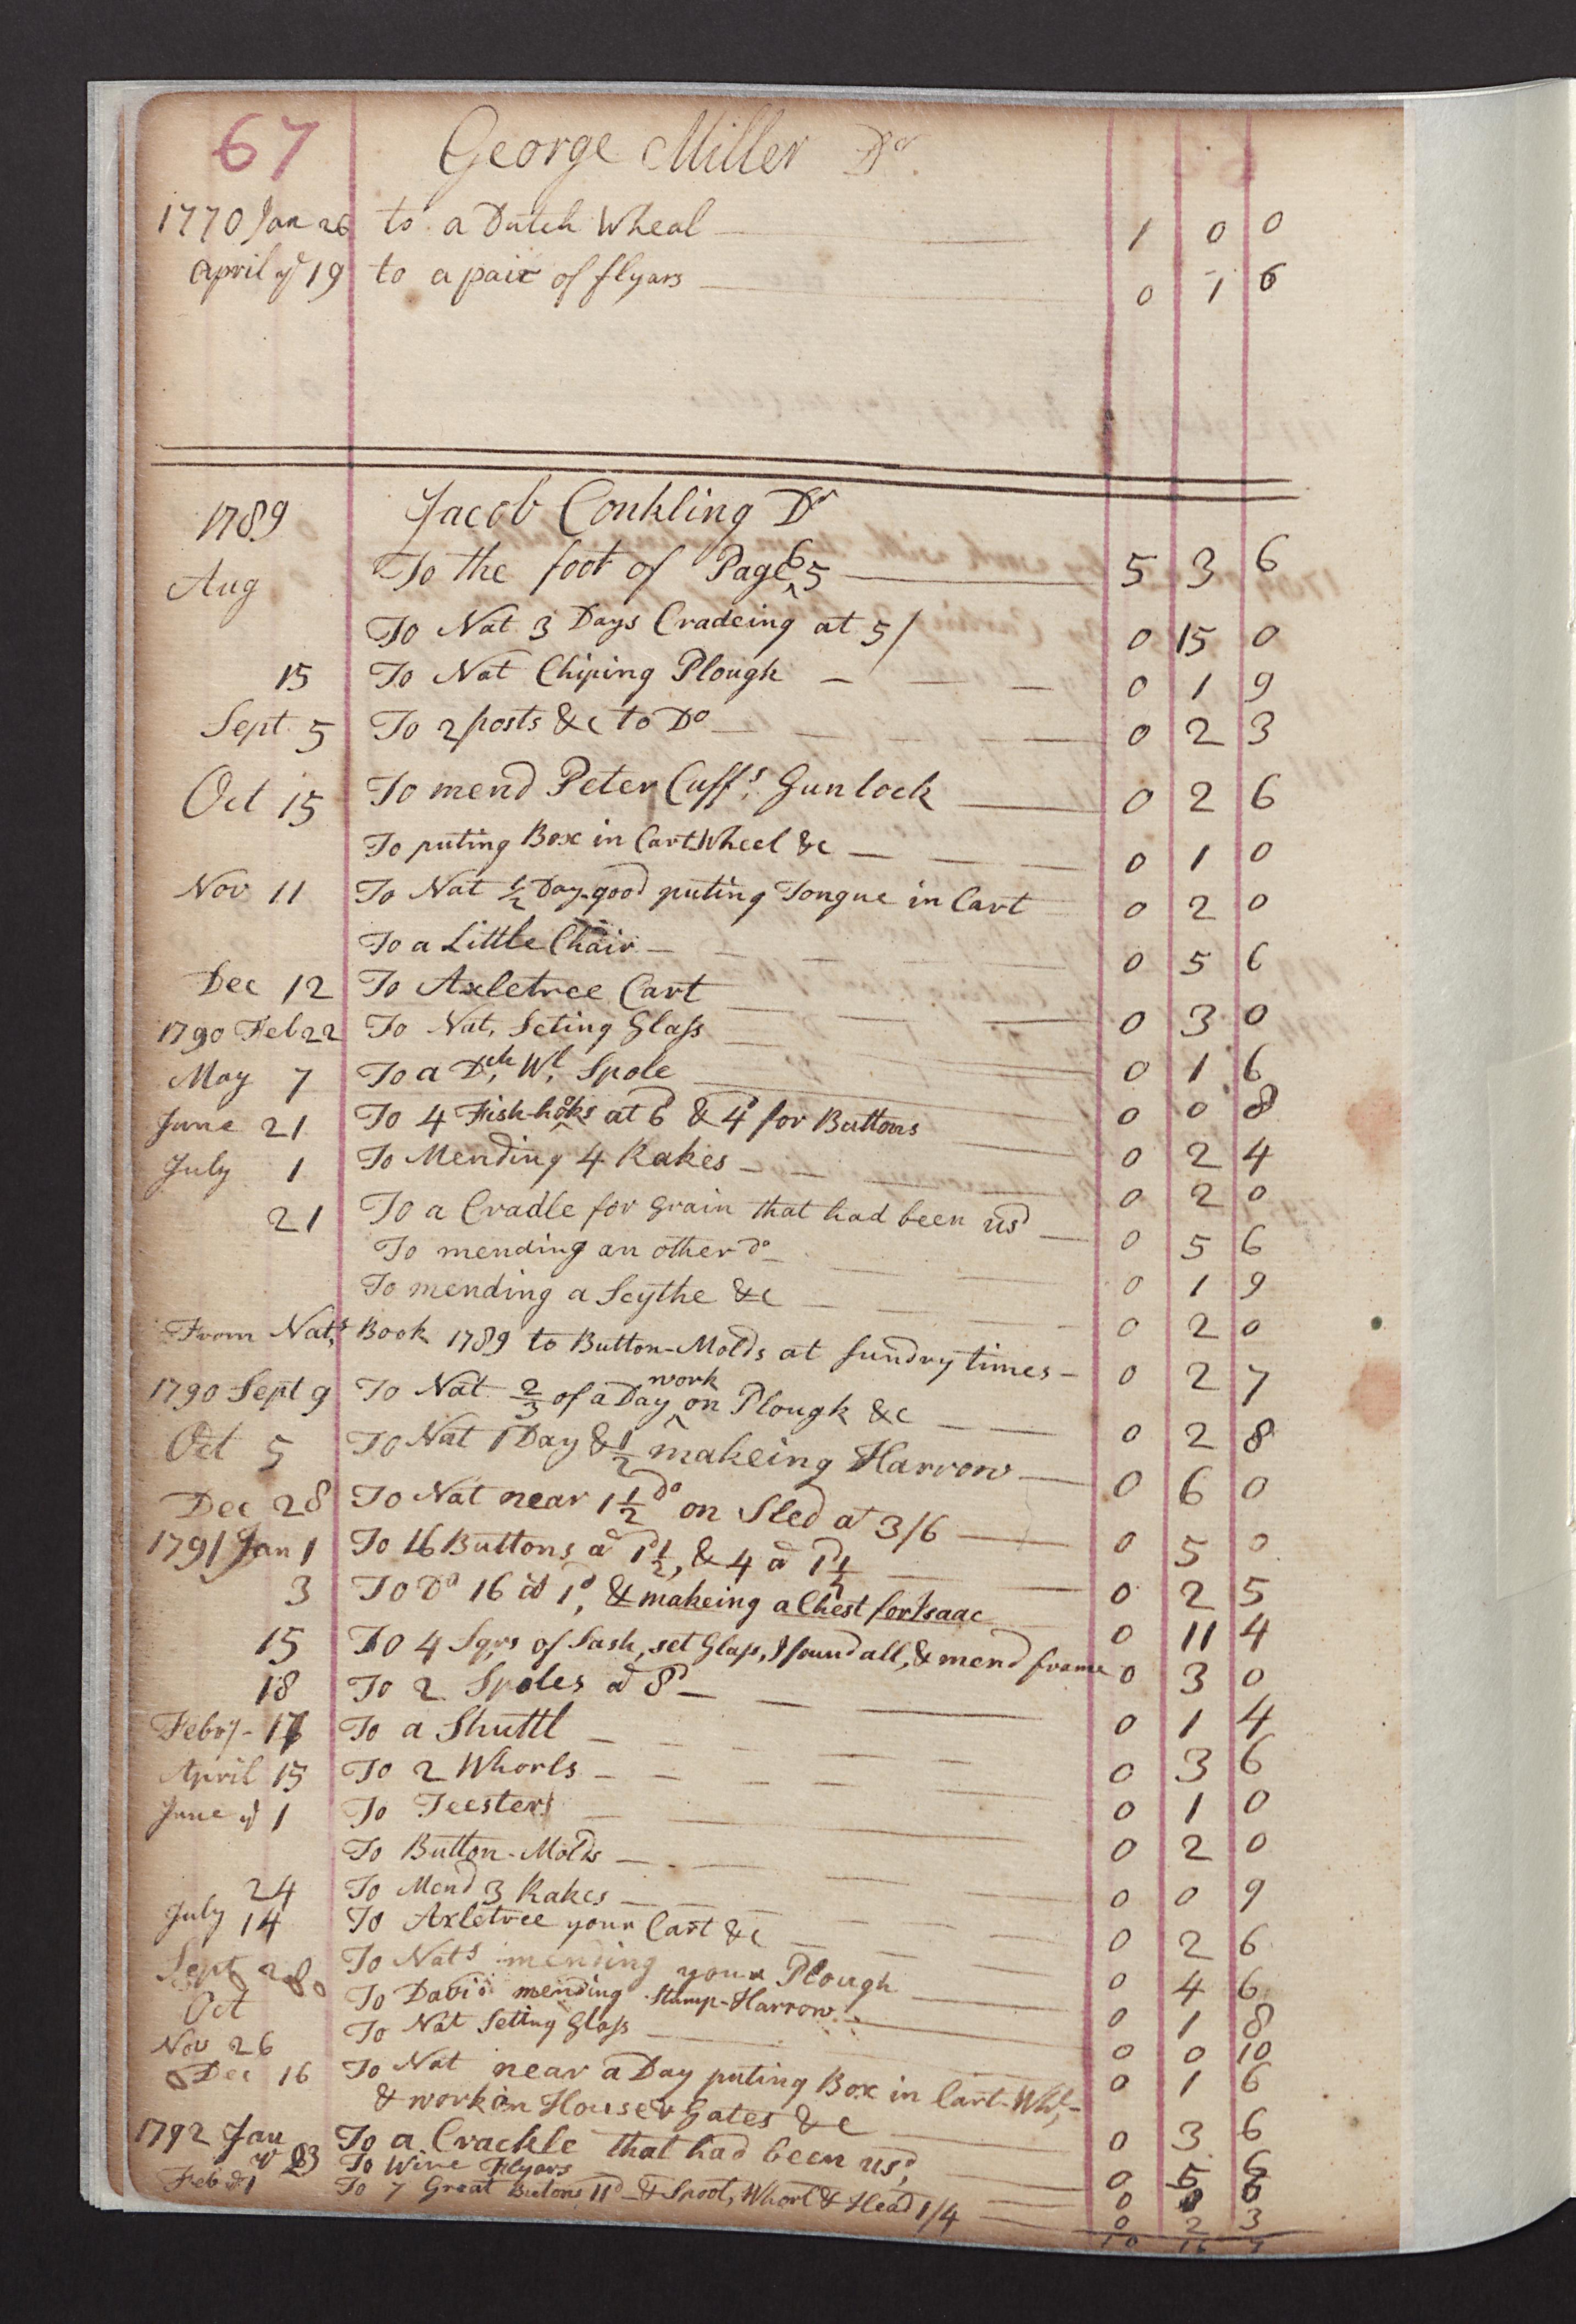 67 George Miller Dr
1770 Jan 26 to a Dutch Wheal 1 0 0
April ye 19 to a pair of flyars 0 1 6
1789 Jacob Conkling Dr
Aug To the foot of Page 65 5 3 6
To Nat 3 Days Cradeing at 5/ 0 15 0
15 To Nat Chiping Plough 0 1 9
Sept 5 To 2 posts &c to Do 0 2 3
Oct 15 To mend Peter Cuffs Gunlock 0 2 6
To puting Box in Cart Wheel &c 0 1 0
Nov 11 To Nat 1/2 Day good puting Tongue in Cart 0 2 0
To a Little Chair 0 5 6
Dec 12 To Axletree Cart 0 3 0
1790 Feb 22 To Nat, Seting Glass 0 1 6
May 7 To a Dch, Wl, Spole 0 0 8
June 21 To 4 Fish-hoks at 6d & 4d for Buttons 0 2 4
July 1 To Mending 4 Rakes 0 2 0
21 To a Cradle for grain that had been usd 0 5 6
To mending an other do 0 1 9
To mending a Scythe &c 0 2 0
From Nats Book 1789 to Button-Molds at sundry times 0 2 7
1790 Sept 9 To Nat 2/3 of a Day work on Plough &c 0 2 8
Oct 5 To Nat 1 Day & 1/2 makeing Harrow 0 6 0
Dec 28 To Nat near 1 1/2 do on Sled at 3/6 0 5 0
1791 Jan 1 To 16 Buttons a 1d 1/2, & 4 a 1d 1/4 0 2 5
3 To Do 16 at 1d, & makeing a Chest for Isaac 0 11 4
15 To 4 Sqrs of Sash, set Glass, I found all, & mend frame 0 3 0
18 To 2 Spoles a 8d 0 1 4
Febry 17 To a Shuttl 0 3 6
April 15 To 2 Whorls 0 1 0
June ye 1 To Teesters 0 2 0
To Button-Molds 0 0 9
24 To Mend 3 Rakes 0 2 6
July 14 To Axletree your Cart &c 0 4 6
Sept 28 To Nats mending your Plough 0 1 8
Oct To David mending Stump-Harrow 0 0 10
Nov 26 To Nat Seting Glass 0 1 6
Dec 16 To Nat near a Day puting Box in Cart-Whl,
& work on House & Gates &c 0 3 6
1792 Jan To a Crackle that had been usd, 0 5 6
ye 23 To Wire Flyars 0
Feb ye 1 To 7 Great Butons 11d & Spool, Whorl & Head 1/4 0 2 3
10 16